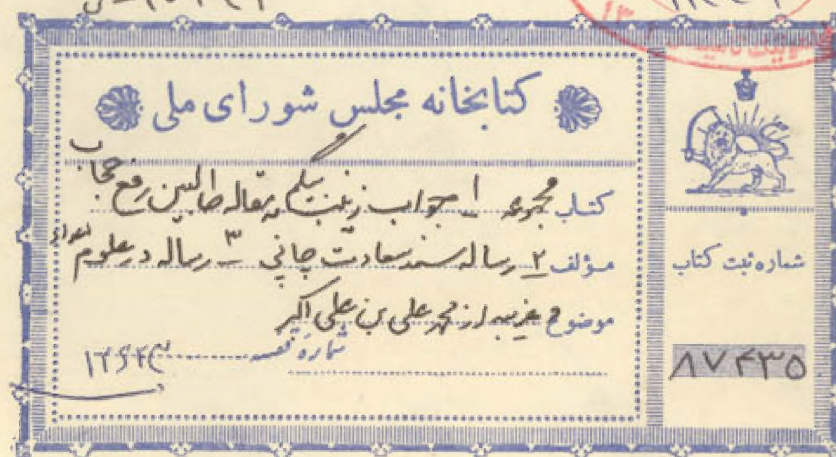 کتابخانه مجلس شورای ملی
کتاب مجموعه ۱ جواب زینب بیگم بمقاله طالبین رفع حجاب
مؤلف ۲ رساله سند سعادت جانی ۳ رساله در علوم
موضوع غریبه از محمد علی بن علی اکبر
شماره قفسه
شماره ثبت کتاب
۸۷۴۳۵